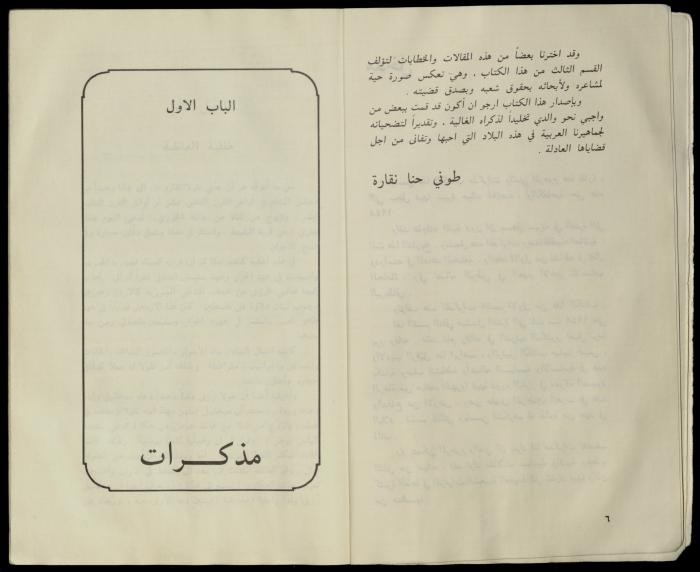 وقد اخترنا بعضاً من هذه المقالات والخطابات لتؤلف
القسم الثالث من هذا الكتاب ، وهي تعكس صورة حية
لمشاعره ولأبحاثه بحقوق شعبه وبصدق قضيته .
وبإصدار هذا الكتاب ارجو ان أكون قد قمت ببعض من
واجبي نحو والدي تخليداً لذكراه الغالية ، وتقديراً لتضحياته
لجماهيرنا العربية في هذه البلاد التي احبها وتفانى من اجل
قضاياها العادلة .
طوني حنا نقارة
٦
الباب الاول
مذكرات